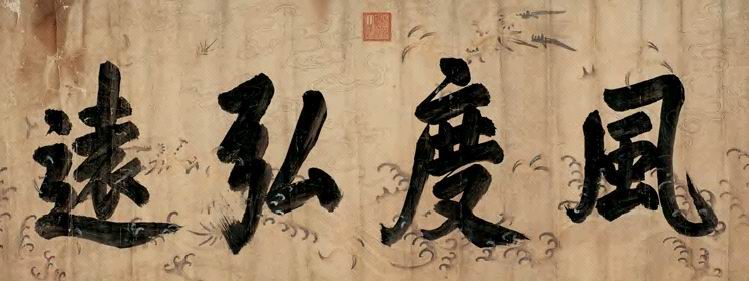 風度弘遠